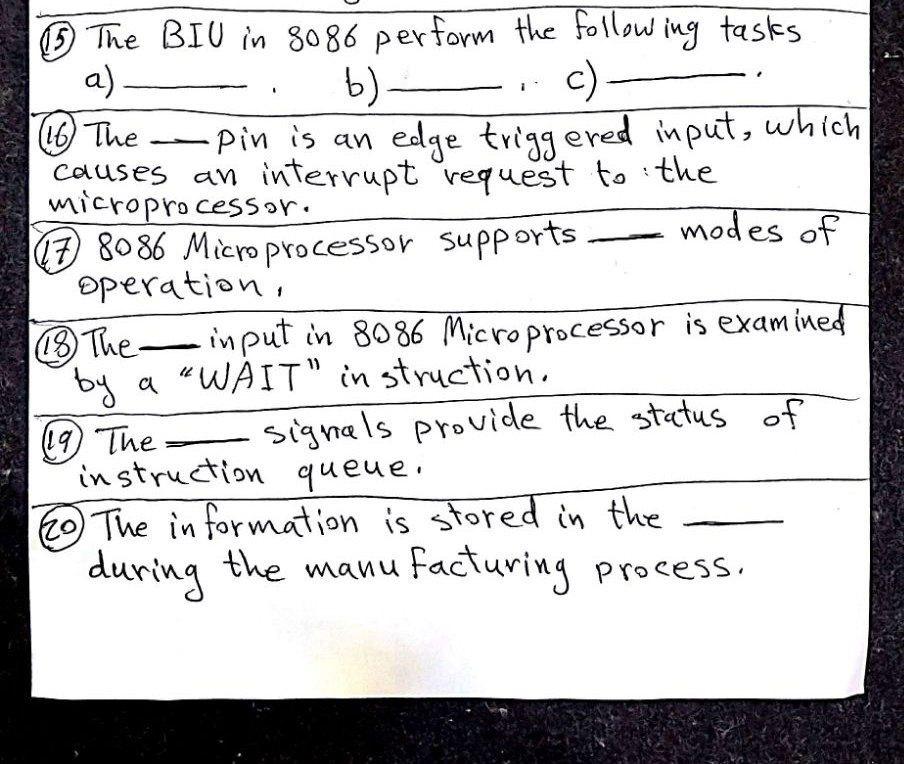 (15) The BIU in 8086 perform the following tasks
a) ______ . b) ______ . c) ______ .
(16) The ___ pin is an edge triggered input, which
causes an interrupt request to the
microprocessor.
(17) 8086 Microprocessor supports ___ modes of
operation,
(18) The ___ input in 8086 Microprocessor is examined
by a "WAIT" instruction.
(19) The ___ signals provide the status of
instruction queue.
(20) The information is stored in the ___
during the manufacturing process.